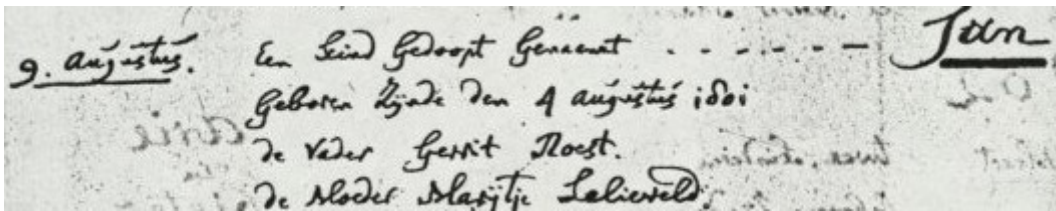 9. Augustus. Een Kind Gedoopt Genaemt - - - - - - - Jan
Geboren Zijnde den 4 Augustus 1801
de Vader Gerrit Roest.
de Moeder Marijtje Lelieveld.